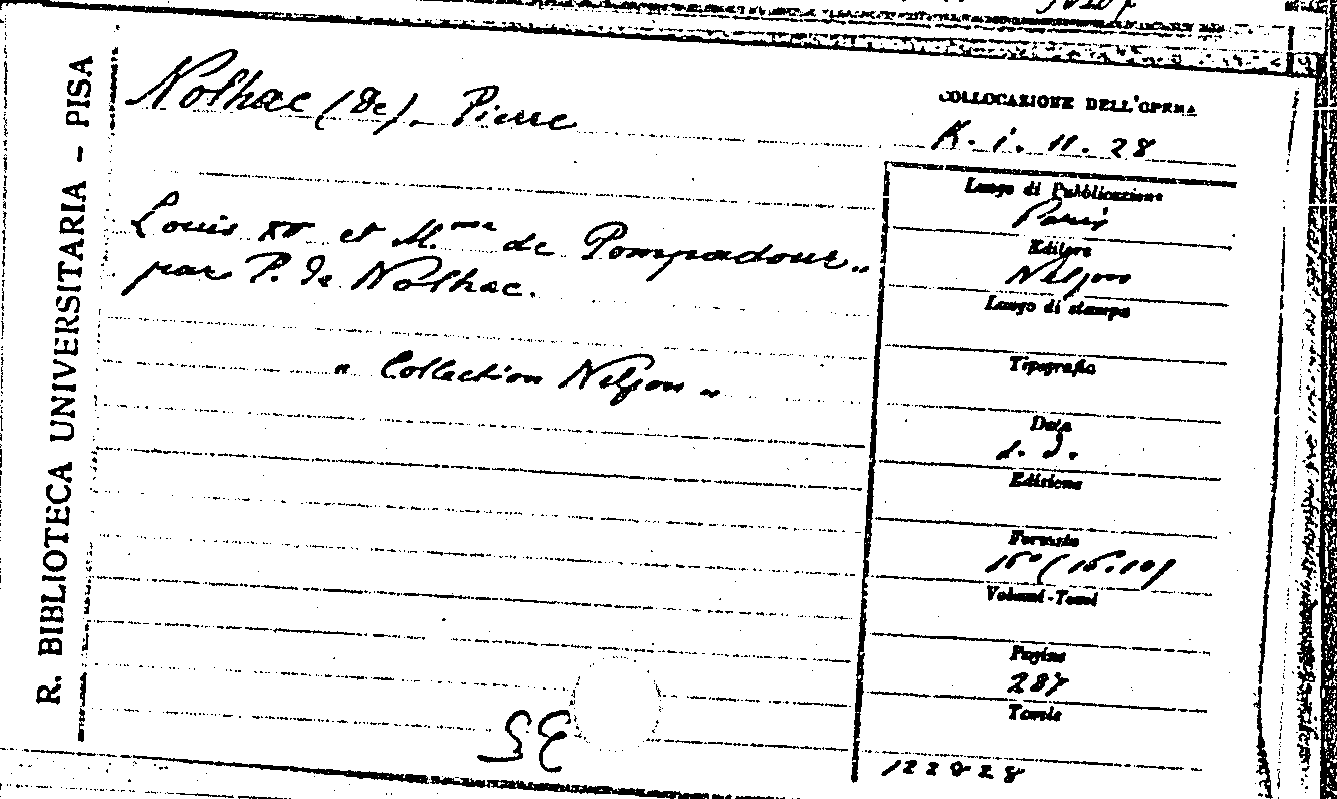 R. BIBLIOTECA UNIVERSITARIA - PISA
Nolhac (De), Pierre
COLLOCAZIONE DELL'OPERA
K. i. 11. 28
Louis XV et M.me de Pompadour„
par P. de Nolhac.
„ Collection Nelson „
SE
Luogo di Pubblicazione
Paris
Editore
Nelson
Luogo di stampa
Tipografia
Data
s. d.
Edizione
Formato
16° (16.10)
Volumi - Tomi
Pagine
287
Tavole
122828